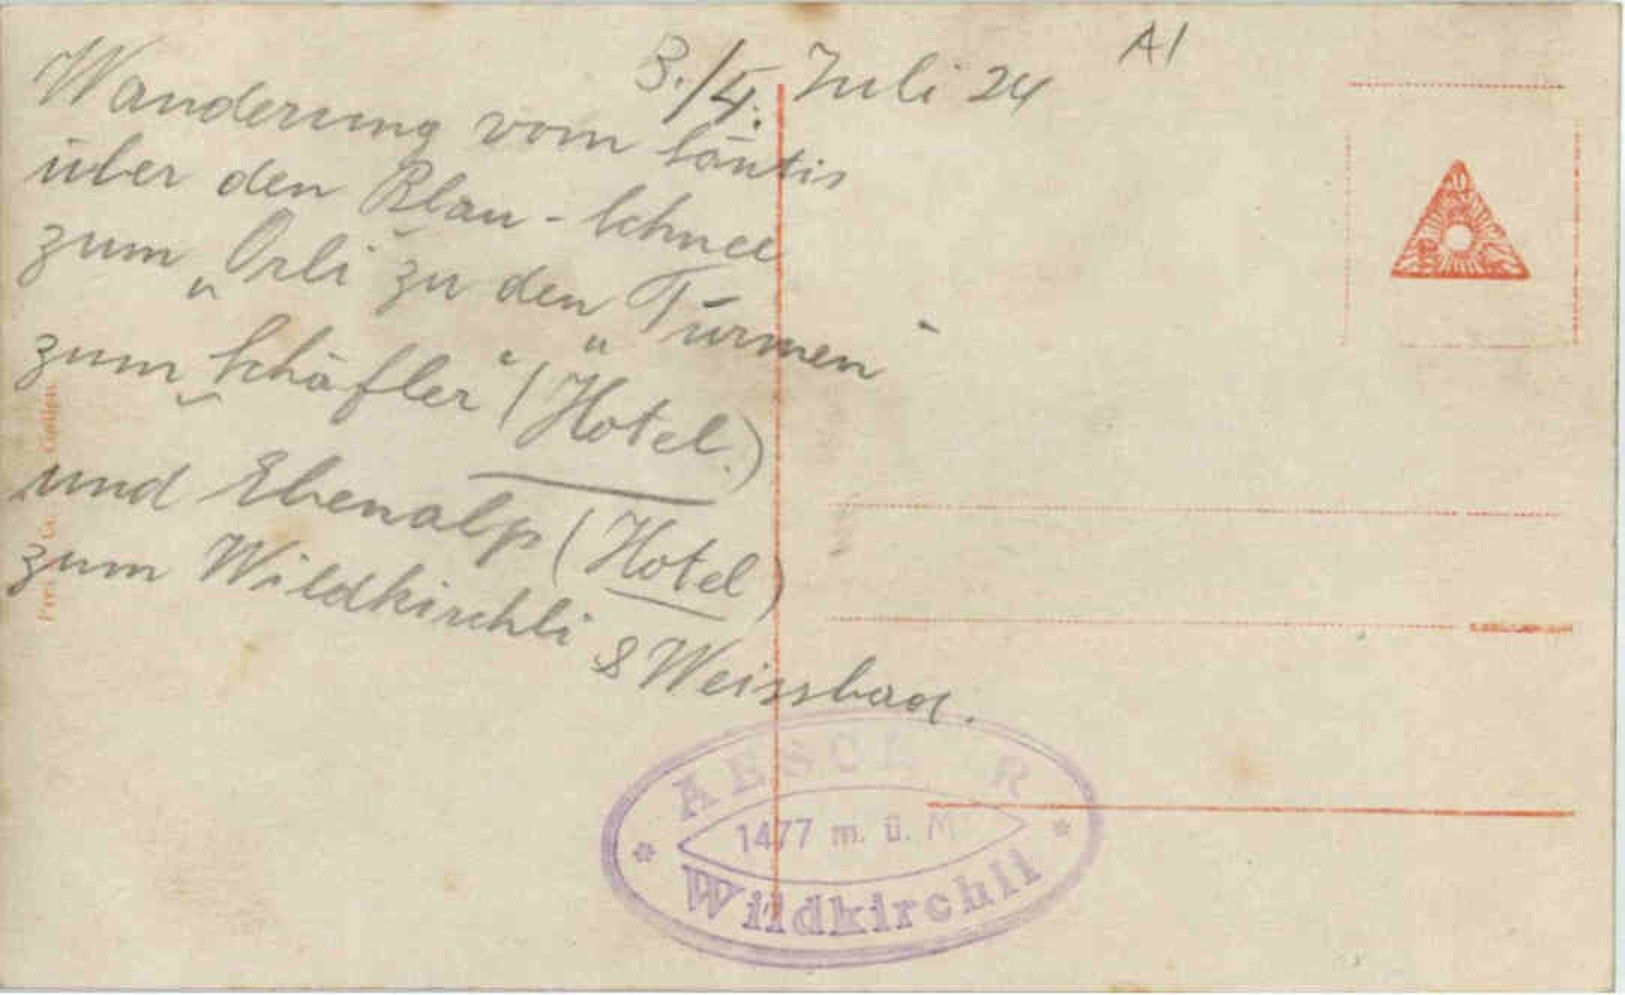 A1
3./4. Juli 24
Wanderung vom Säntis
über den Blau-Schnee
zum „Örli“ zu den Türmen
zum „Schäfler“ (Hotel.)
und Ebenalp (Hotel)
zum Wildkirchli & Weissbad.
AESCHER
1477 m. ü. M
Wildkirchli